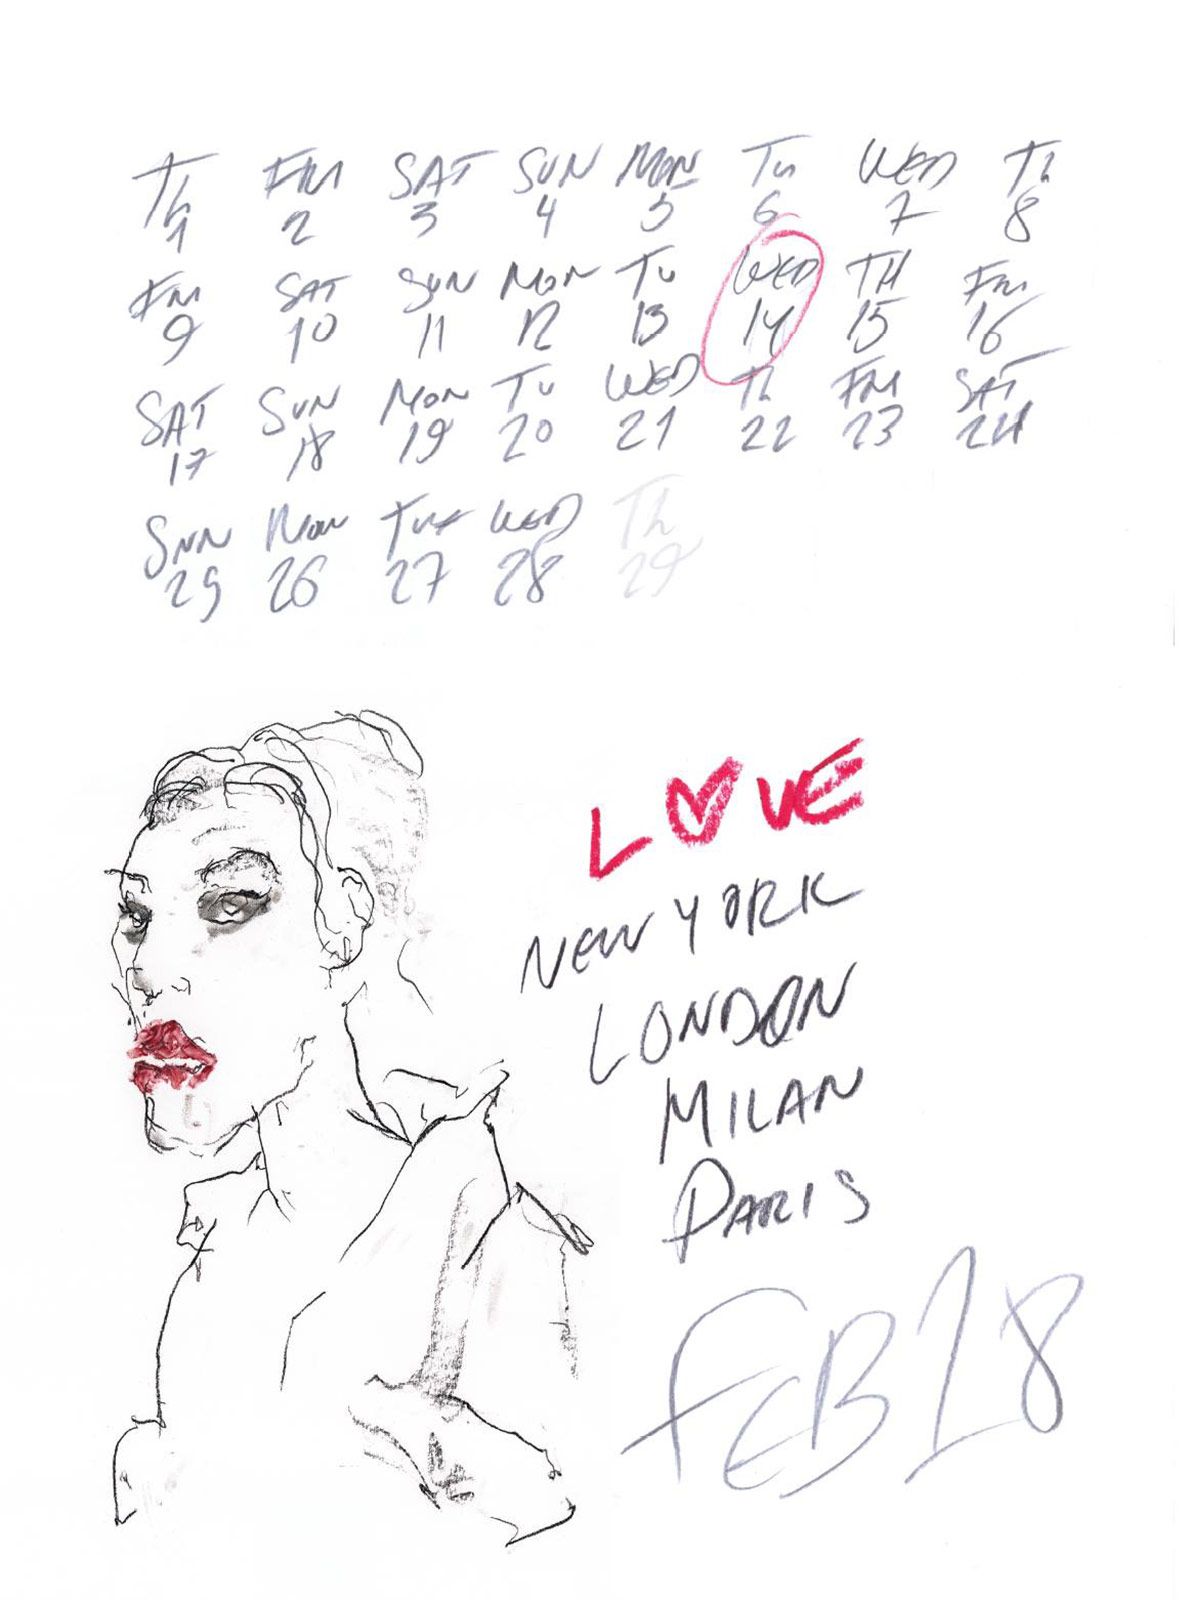 Th FRI SAT SUN MON Tu WED Th
1 2 3 4 5 6 7 8
FRI SAT SUN MON TU WED TH FRI
9 10 11 12 13 14 15 16
SAT SUN MON TU WED Th FRI SAT
17 18 19 20 21 22 23 24
SUN Mon Tue WED Th
25 26 27 28 29
L♥VE
NEW YORK
LONDON
MILAN
PARIS
FEB 18